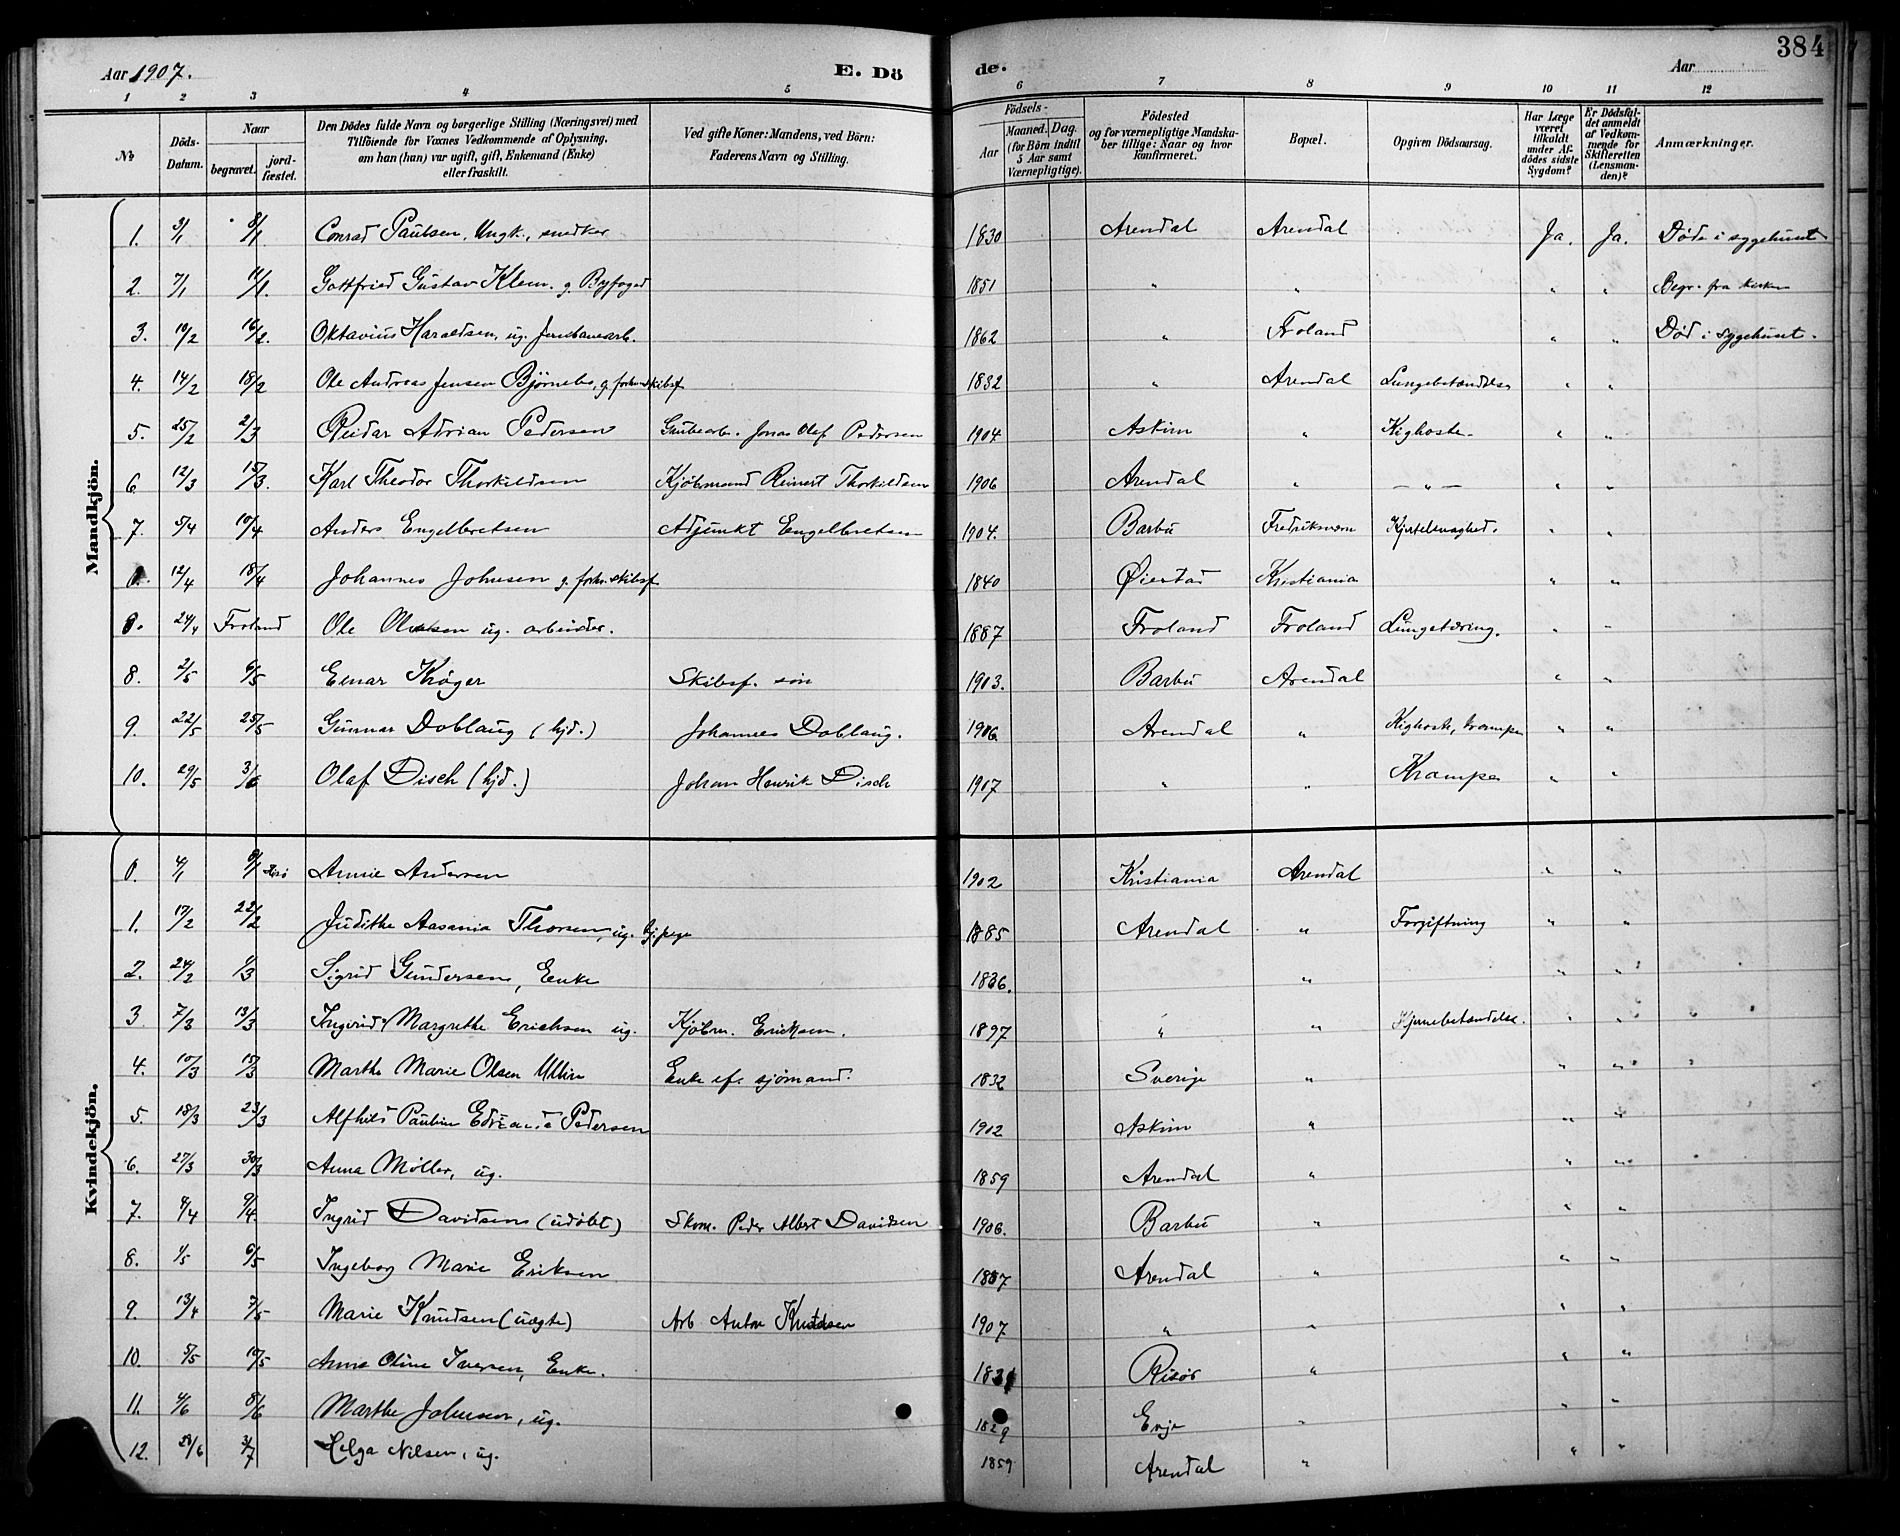 Aar 1907.
E. Dö
de.
Aar
384
1 2 3 4 5 6 7 8 9 10 11 12
No
Döds-Datum.
Naar begravet. jord-fæstet.
Den Dödes fulde Navn og borgerlige Stilling (Næringsvei) med Tilföiende for Voxnes Vedkommende af Oplysning, om han (hun) var ugift, gift, Enkemand (Enke) eller fraskilt.
Ved gifte Koner: Mandens, ved Börn: Faderens Navn og Stilling.
Födsels- Aar Maaned. Dag. (for Börn indtil 5 Aar samt Værnepligtige).
Födested og for værnepligtige Mandska-ber tillige: Naar og hvor konfirmeret.
Bopæl.
Opgiven Dödsaarsag.
Har Læge været tilkaldt under Af-dödes sidste Sygdom?
Er Dödsfal-det anmeldt af Vedkom-mende for Skifteretten (Lensman-den)?
Anmærkninger.
Mandkjön.
1. 3/1 8/1 Conrad Paulsen, Ungk., snedker 1830 Arendal Arendal Ja. Ja. Døde i sygehuset
2. 7/1 11/1. Gottfried Gustav Klem. g. Byfoged 1851 " " " " Begr. fra kirken
3. 10/2 16/2. Oktavius Haraldsen, ug. Jernbanearb. 1862 " Froland " " Død i sygehuset.
4. 14/2 18/2 Ole Andreas Jensen Bjørnebo, g. forhv. skibsf 1832 " Arendal Lungebetændelse " "
5. 25/2 2/3 Reidar Adrian Pedersen Grubearb. Jonas Olaf Pedersen 1904 Askim " Kighoste. " "
6. 12/3 15/3. Karl Theodor Thorkildsen Kjøbmand Reinert Thorkildsen 1906 Arendal " — " — " "
7. 5/4 10/4 Anders Engelbretsen Adjunkt Engelbretsen 1904. Barbu Fredriksværn Hjertesvaghed. " "
12/4 18/4 Johannes Johnsen g. forhv. skibsf 1840 Øiestad Kristiania " "
0. 24/4 Froland Ole Olsen ug. arbeider. 1887 Froland Froland Lungetæring. " "
8. 2/5 6/5 Einar Krøger Skibsf. søn 1903. Barbu Arendal " "
9. 22/5 25/5 Gunnar Doblaug (hjd.) Johannes Doblaug. 1906 Arendal " Kighoste, krampe " "
10. 29/5 3/6 Olaf Disch (hjd.) Johan Henrik Disch 1907 " " Krampe " "
Kvindekjön.
0. 4/1 8/1 Annie Andersen 1902 Kristiania Arendal " "
1. 17/2 22/2 Judithe Aasania Thorsen, ug. 1885 Arendal " Forgiftning " "
2. 24/2 1/3 Sigrid Gundersen, Enke 1836. " " "
3. 7/3 13/3 Ingerid Margrethe Erichsen ug. Kjøbm. Ericksen. 1897 " " Hjernebetændelse. " "
4. 10/3 15/3 Marthe Marie Olsen Ullin Enke ef. sjømand. 1832 Sverige " " "
5. 18/3 23/3 Alfhild Pauline Pedersen 1902 Askim " " "
6. 27/3 30/3 Anna Møller, ug. 1859 Arendal " " "
7. 4/4 9/4. Ingrid Davidsen (udøbt) Skom. Peder Albert Davidsen 1906. Barbu " " "
8. 1/5 6/5 Ingeborg Marie Eriksen 1887 Arendal " " "
9. 13/4 7/5 Marie Knudsen (uægte) Arb Anton Knudsen 1907 " " " "
10. 5/5 10/5 Anne Oline Iversen, Enke. 1831 Risør " " "
11. 4/6 8/6 Marthe Johnsen, ug. 1829 Evje " " "
12. 28/6 3/7 Helga Nilsen, ug. 1859 Arendal " " "